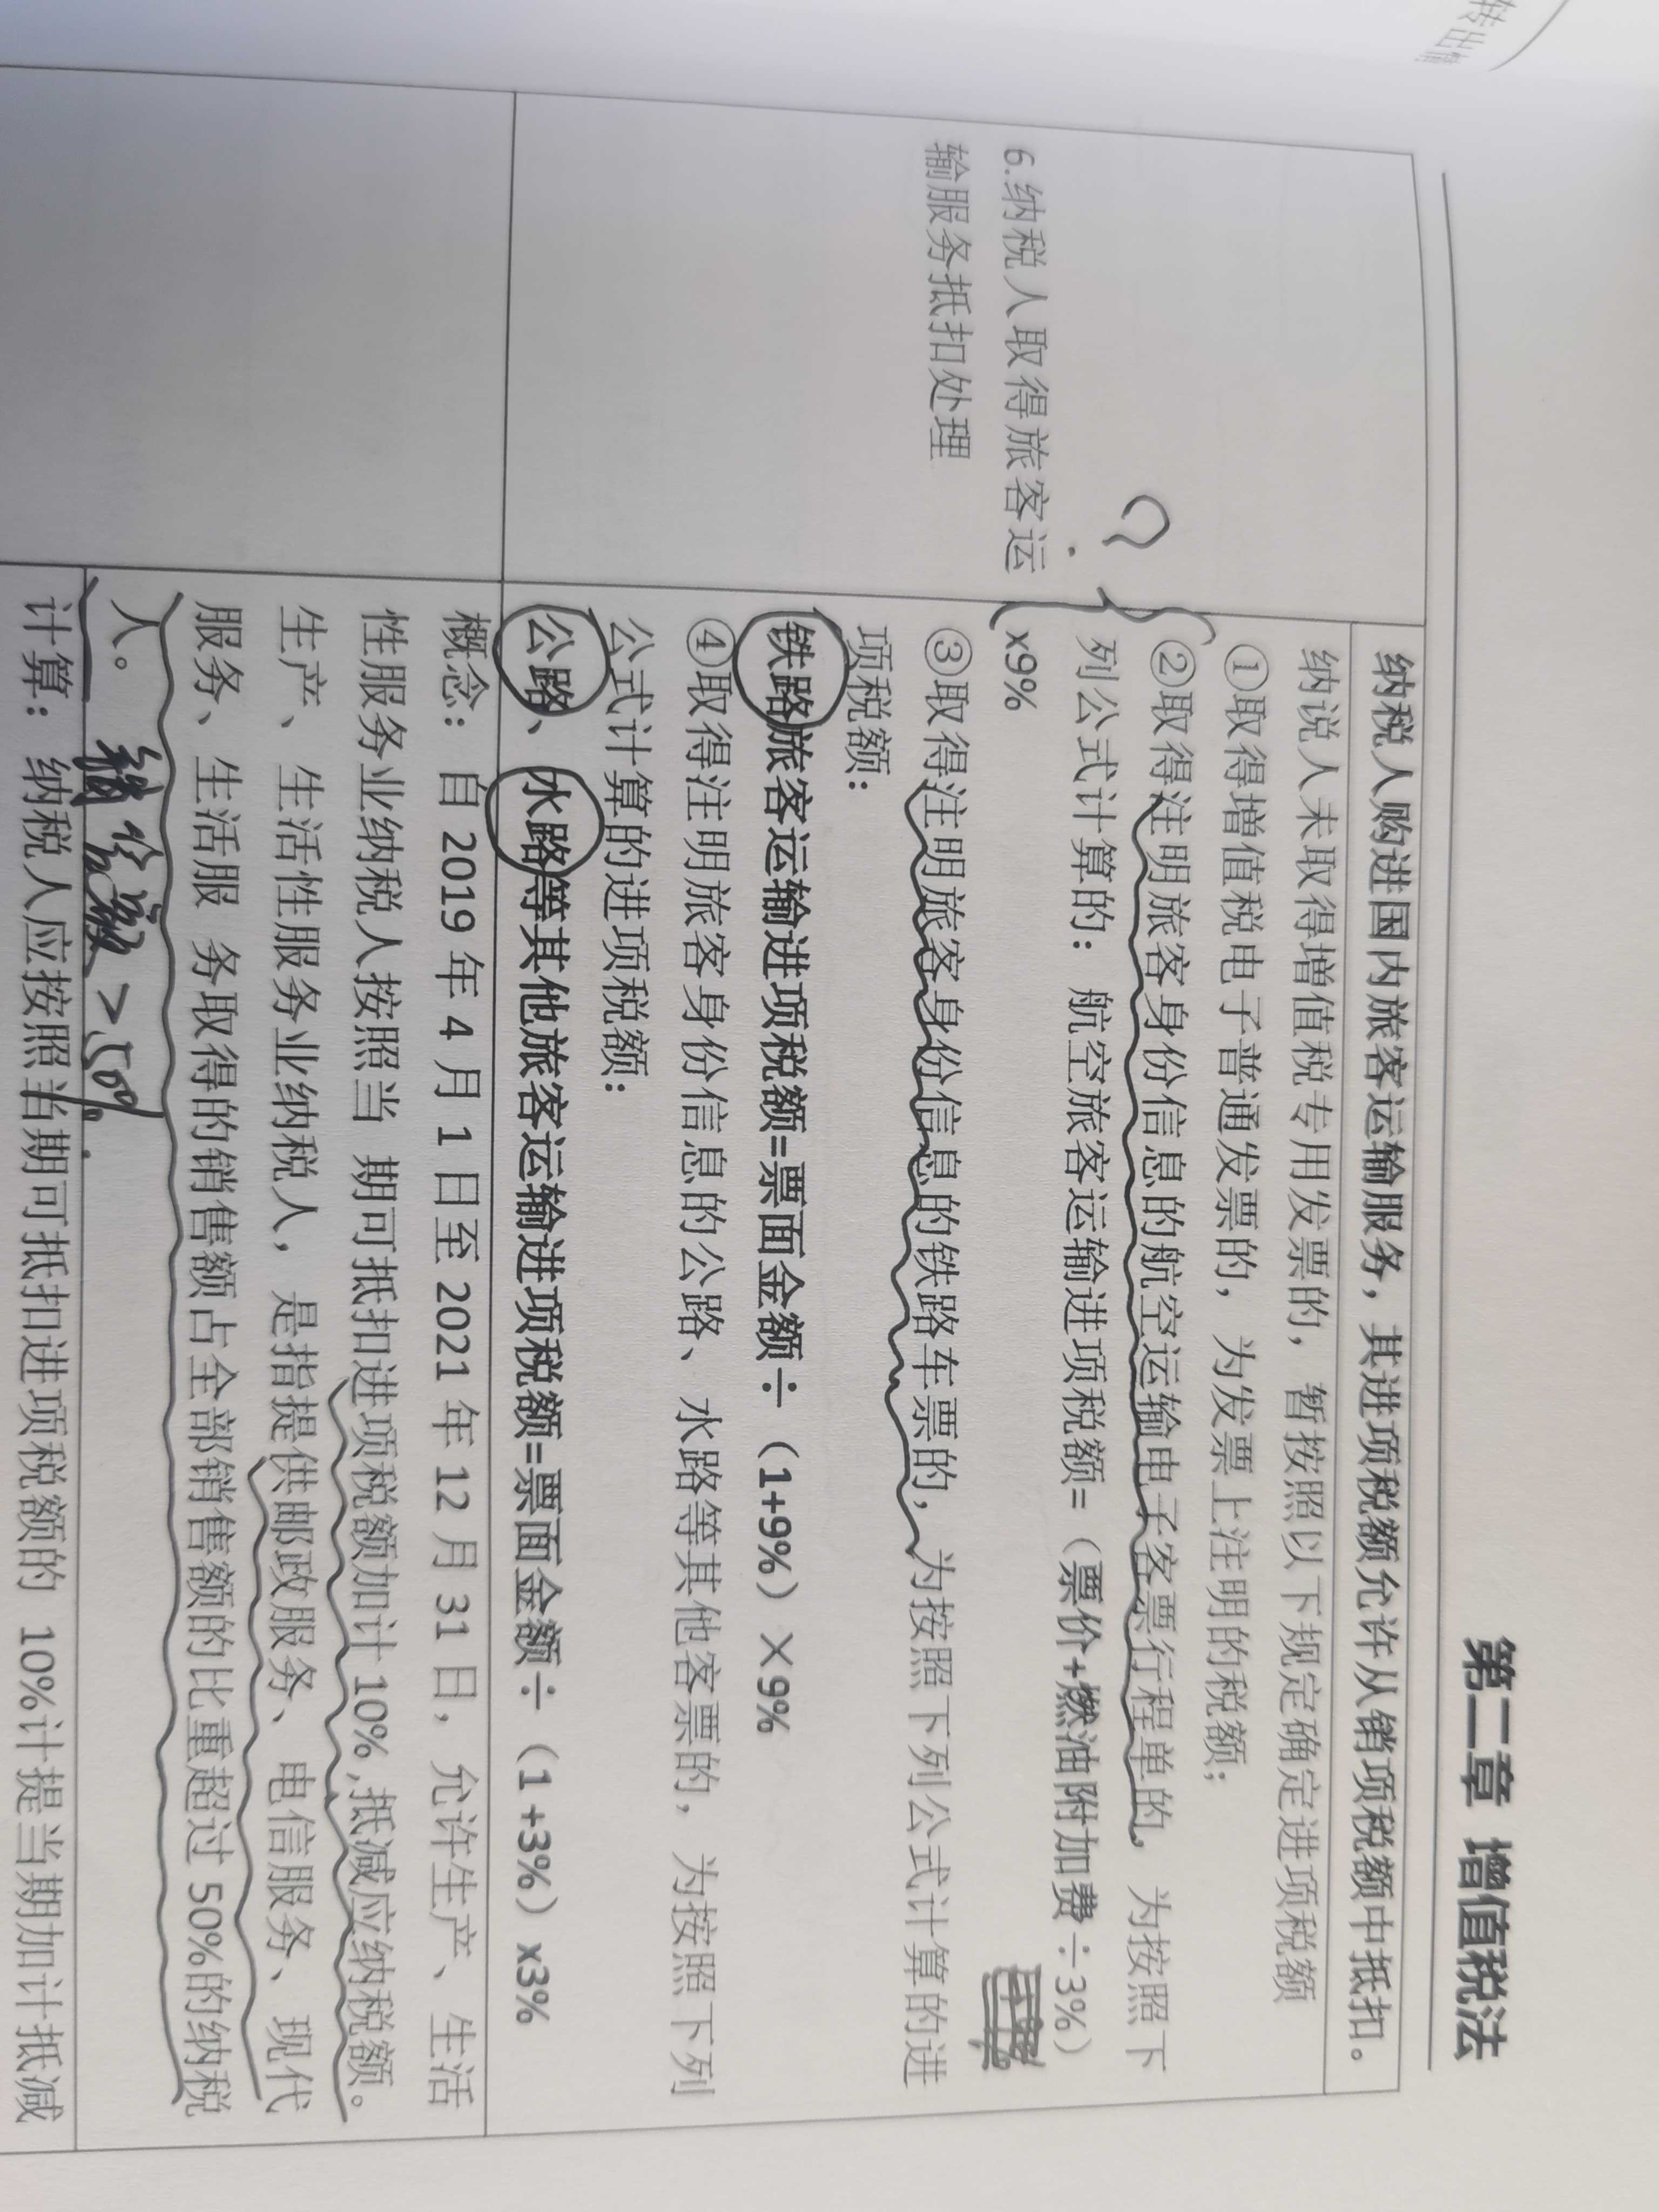 第二章 增值税法
纳税人购进国内旅客运输服务，其进项税额允许从销项税额中抵扣。
纳说人未取得增值税专用发票的，暂按照以下规定确定进项税额
①取得增值税电子普通发票的，为发票上注明的税额；
②取得注明旅客身份信息的航空运输电子客票行程单的，为按照下
列公式计算的：航空旅客运输进项税额=（票价+燃油附加费÷3%）
x9%
?
6.纳税人取得旅客运
输服务抵扣处理
③取得注明旅客身份信息的铁路车票的，为按照下列公式计算的进
项税额：
铁路旅客运输进项税额=票面金额÷（1+9%）×9%
④取得注明旅客身份信息的公路、水路等其他客票的，为按照下列
公式计算的进项税额：
公路、水路等其他旅客运输进项税额=票面金额÷（1 +3%）x3%
概念：自 2019 年 4 月 1 日至 2021 年 12 月 31 日，允许生产、生活
性服务业纳税人按照当 期可抵扣进项税额加计 10%,抵减应纳税额。
生产、生活性服务业纳税人，是指提供邮政服务、电信服务、现代
服务、生活服 务取得的销售额占全部销售额的比重超过 50%的纳税
人。
销售额 > 50%.
计算：纳税人应按照当期可抵扣进项税额的 10%计提当期加计抵减
转出